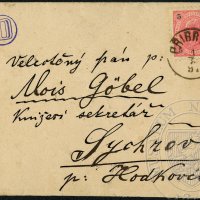 Velectěný pán p:
Alois Göbel
Knížecí sekretář
Sychrov
p: Hodkovic
PŘIBR